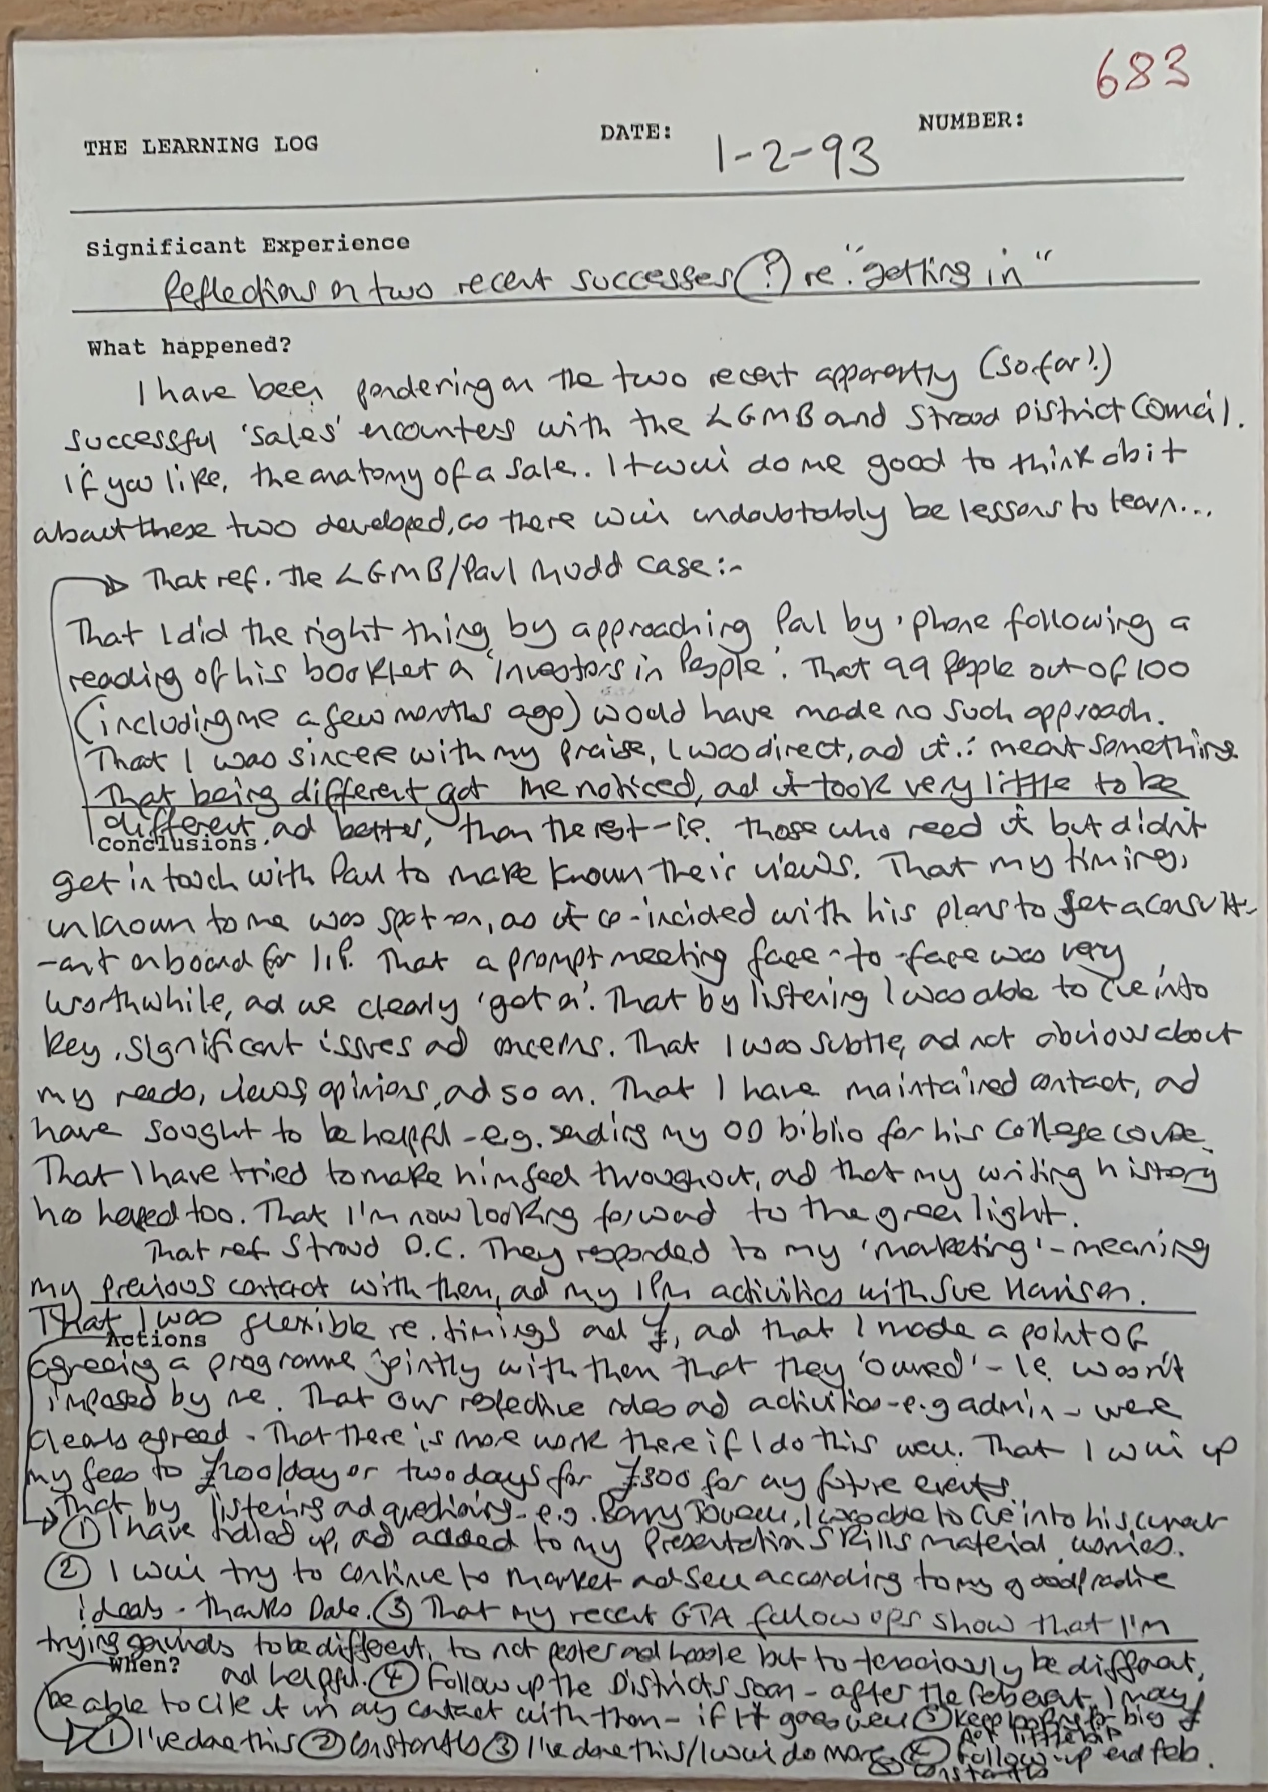 683
THE LEARNING LOG DATE: 1-2-93 NUMBER:
Significant Experience
Reflections on two recent successes (?) re. "getting in"
What happened?
I have been pondering on the two recent apparently (so far!)
successful 'sales' encounters with the LGMB and Stroud District Council.
If you like, the anatomy of a sale. It will do me good to think a bit
about these two developed, as there will undoubtably be lessons to learn...
That ref. the LGMB/Paul Mudd case:-
That I did the right thing by approaching Paul by 'phone following a
reading of his booklet on 'Investors in People'. That 99 people out of 100
(including me a few months ago) would have made no such approach.
That I was sincere with my praise, I was direct, and it ∴ meant something.
That being different got me noticed, and it took very little to be
different, and better, than the rest - i.e. those who read it but didn't
Conclusions
get in touch with Paul to make known their views. That my timing,
unknown to me was spot-on, as it co-incided with his plans to get a consult-
-ant on board for IIP. That a prompt meeting face-to-face was very
worthwhile, and we clearly 'got on'. That by listening I was able to cue into
key, significant issues and concerns. That I was subtle, and not obvious about
my needs, views, opinions, and so on. That I have maintained contact, and
have sought to be helpful - e.g. sending my OD biblio for his College course.
That I have tried to make him feel throughout, and that my writing history
has helped too. That I'm now looking forward to the green light.
That ref Stroud D.C. They responded to my 'marketing' - meaning
my previous contact with them, and my IPM activities with Sue Harrison.
That I was flexible re. timings and £, and that I made a point of
Actions
agreeing a programme jointly with them that they 'owned' - i.e. wasn't
imposed by me. That our respective roles and activities - e.g admin - were
clearly agreed. That there is more work there if I do this well. That I will up
my fees to £200/day or two days for £300 for any future events.
That by listening and questioning - e.g. Barry I was able to cue into his current
worries.
① I have tidied up, and added to my Presentation Skills material.
② I will try to continue to market and sell according to my good practice
ideals - thanks Dale. ③ That my recent GTA follow ups show that I'm
trying to be different, to not pester and hassle but to tenaciously be different,
When?
and helpful. ④ Follow up the Districts soon - after the Feb event. I may
be able to cite it in any contact with them - if it goes well ⑤ Keep looking for big £
not little
① I've done this ② Constantly ③ I've done this/I will do more ④ Follow-up end feb.
⑤ Constantly